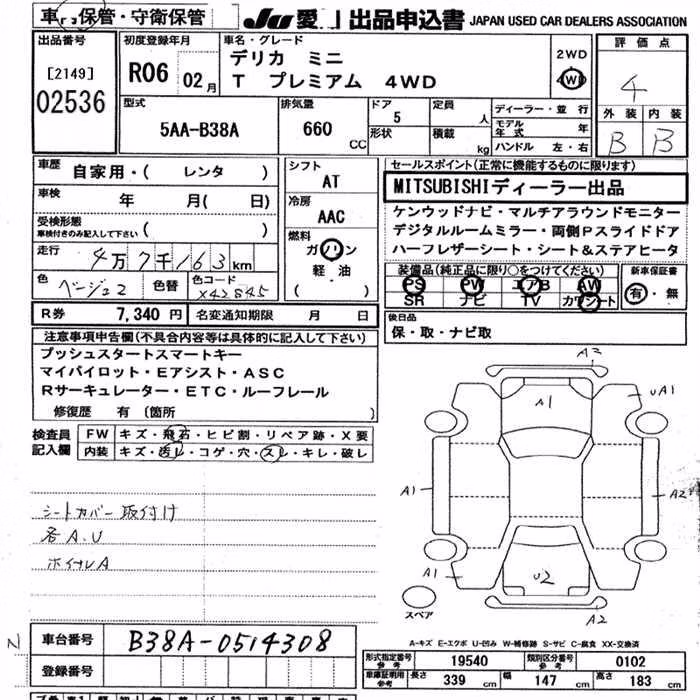 車 保管・守衛保管
JU 愛 出品申込書 JAPAN USED CAR DEALERS ASSOCIATION
出品番号
[2149]
02536
初度登録年月
R06 02月
車名・グレード
デリカ ミニ
T プレミアム 4WD
2WD
4WD
評価点
4
外装 内装
B B
型式
5AA-B38A
排気量
660 CC
ドア
5
形状
定員
人
積載
kg
ディーラー・並行
モデル年式 年
ハンドル 左・右
車歴
自家用・( レンタ )
車検
年 月( 日)
受検形態
車検付きのみ記入して下さい ( )
走行
4万7千163km
色
ベージュ2
色替
色コード
X42S45
シフト
AT
冷房
AAC
燃料
ガソリン
軽・油
( )
セールスポイント(正常に機能するものに限ります)
MITSUBISHIディーラー出品
ケンウッドナビ・マルチアラウンドモニター
デジタルルームミラー・両側Pスライドドア
ハーフレザーシート・シート&ステアヒータ
装備品(純正品に限り○をつけてください)
PS PW エアB AW
SR ナビ TV カワシート
新車保証書
有・無
R券 7,340円 名変通知期限 月 日
後日品
保・取・ナビ取
注意事項申告欄(不具合内容等は具体的に記入して下さい)
プッシュスタートスマートキー
マイパイロット・Eアシスト・ASC
Rサーキュレーター・ETC・ルーフレール
修復歴 有 〔箇所 〕
検査員記入欄
FW キズ・飛石・ヒビ割・リペア跡・X要
内装 キズ・汚レ・コゲ・穴・スレ・キレ・破レ
シートカバー取付け
各A.U
ホイルA
A2
A1
UA1
A1
A2
A1
U2
A2
スペア
N
車台番号
B38A-0514308
登録番号
A-キズ E-エクボ U-凹み W-補修跡 S-サビ C-腐食 XX-交換済
形式指定番号 参考 19540 類別区分番号 参考 0102
車庫証明用 参考 長さ 339 cm 幅 147 cm 高さ 183 cm